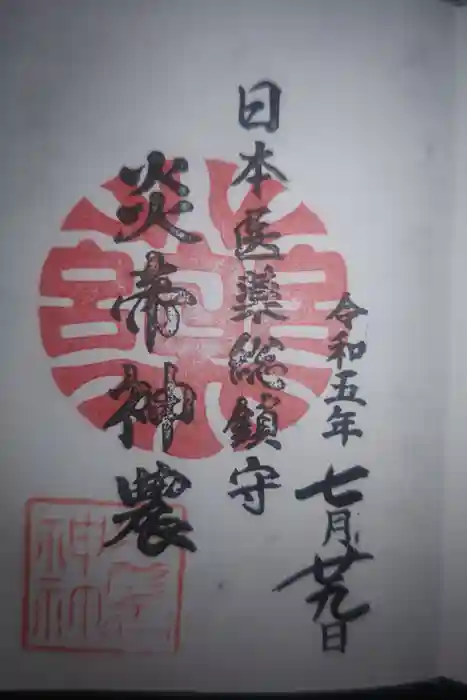 令和五年 七月廿九日
日本医薬総鎮守
炎帝神農